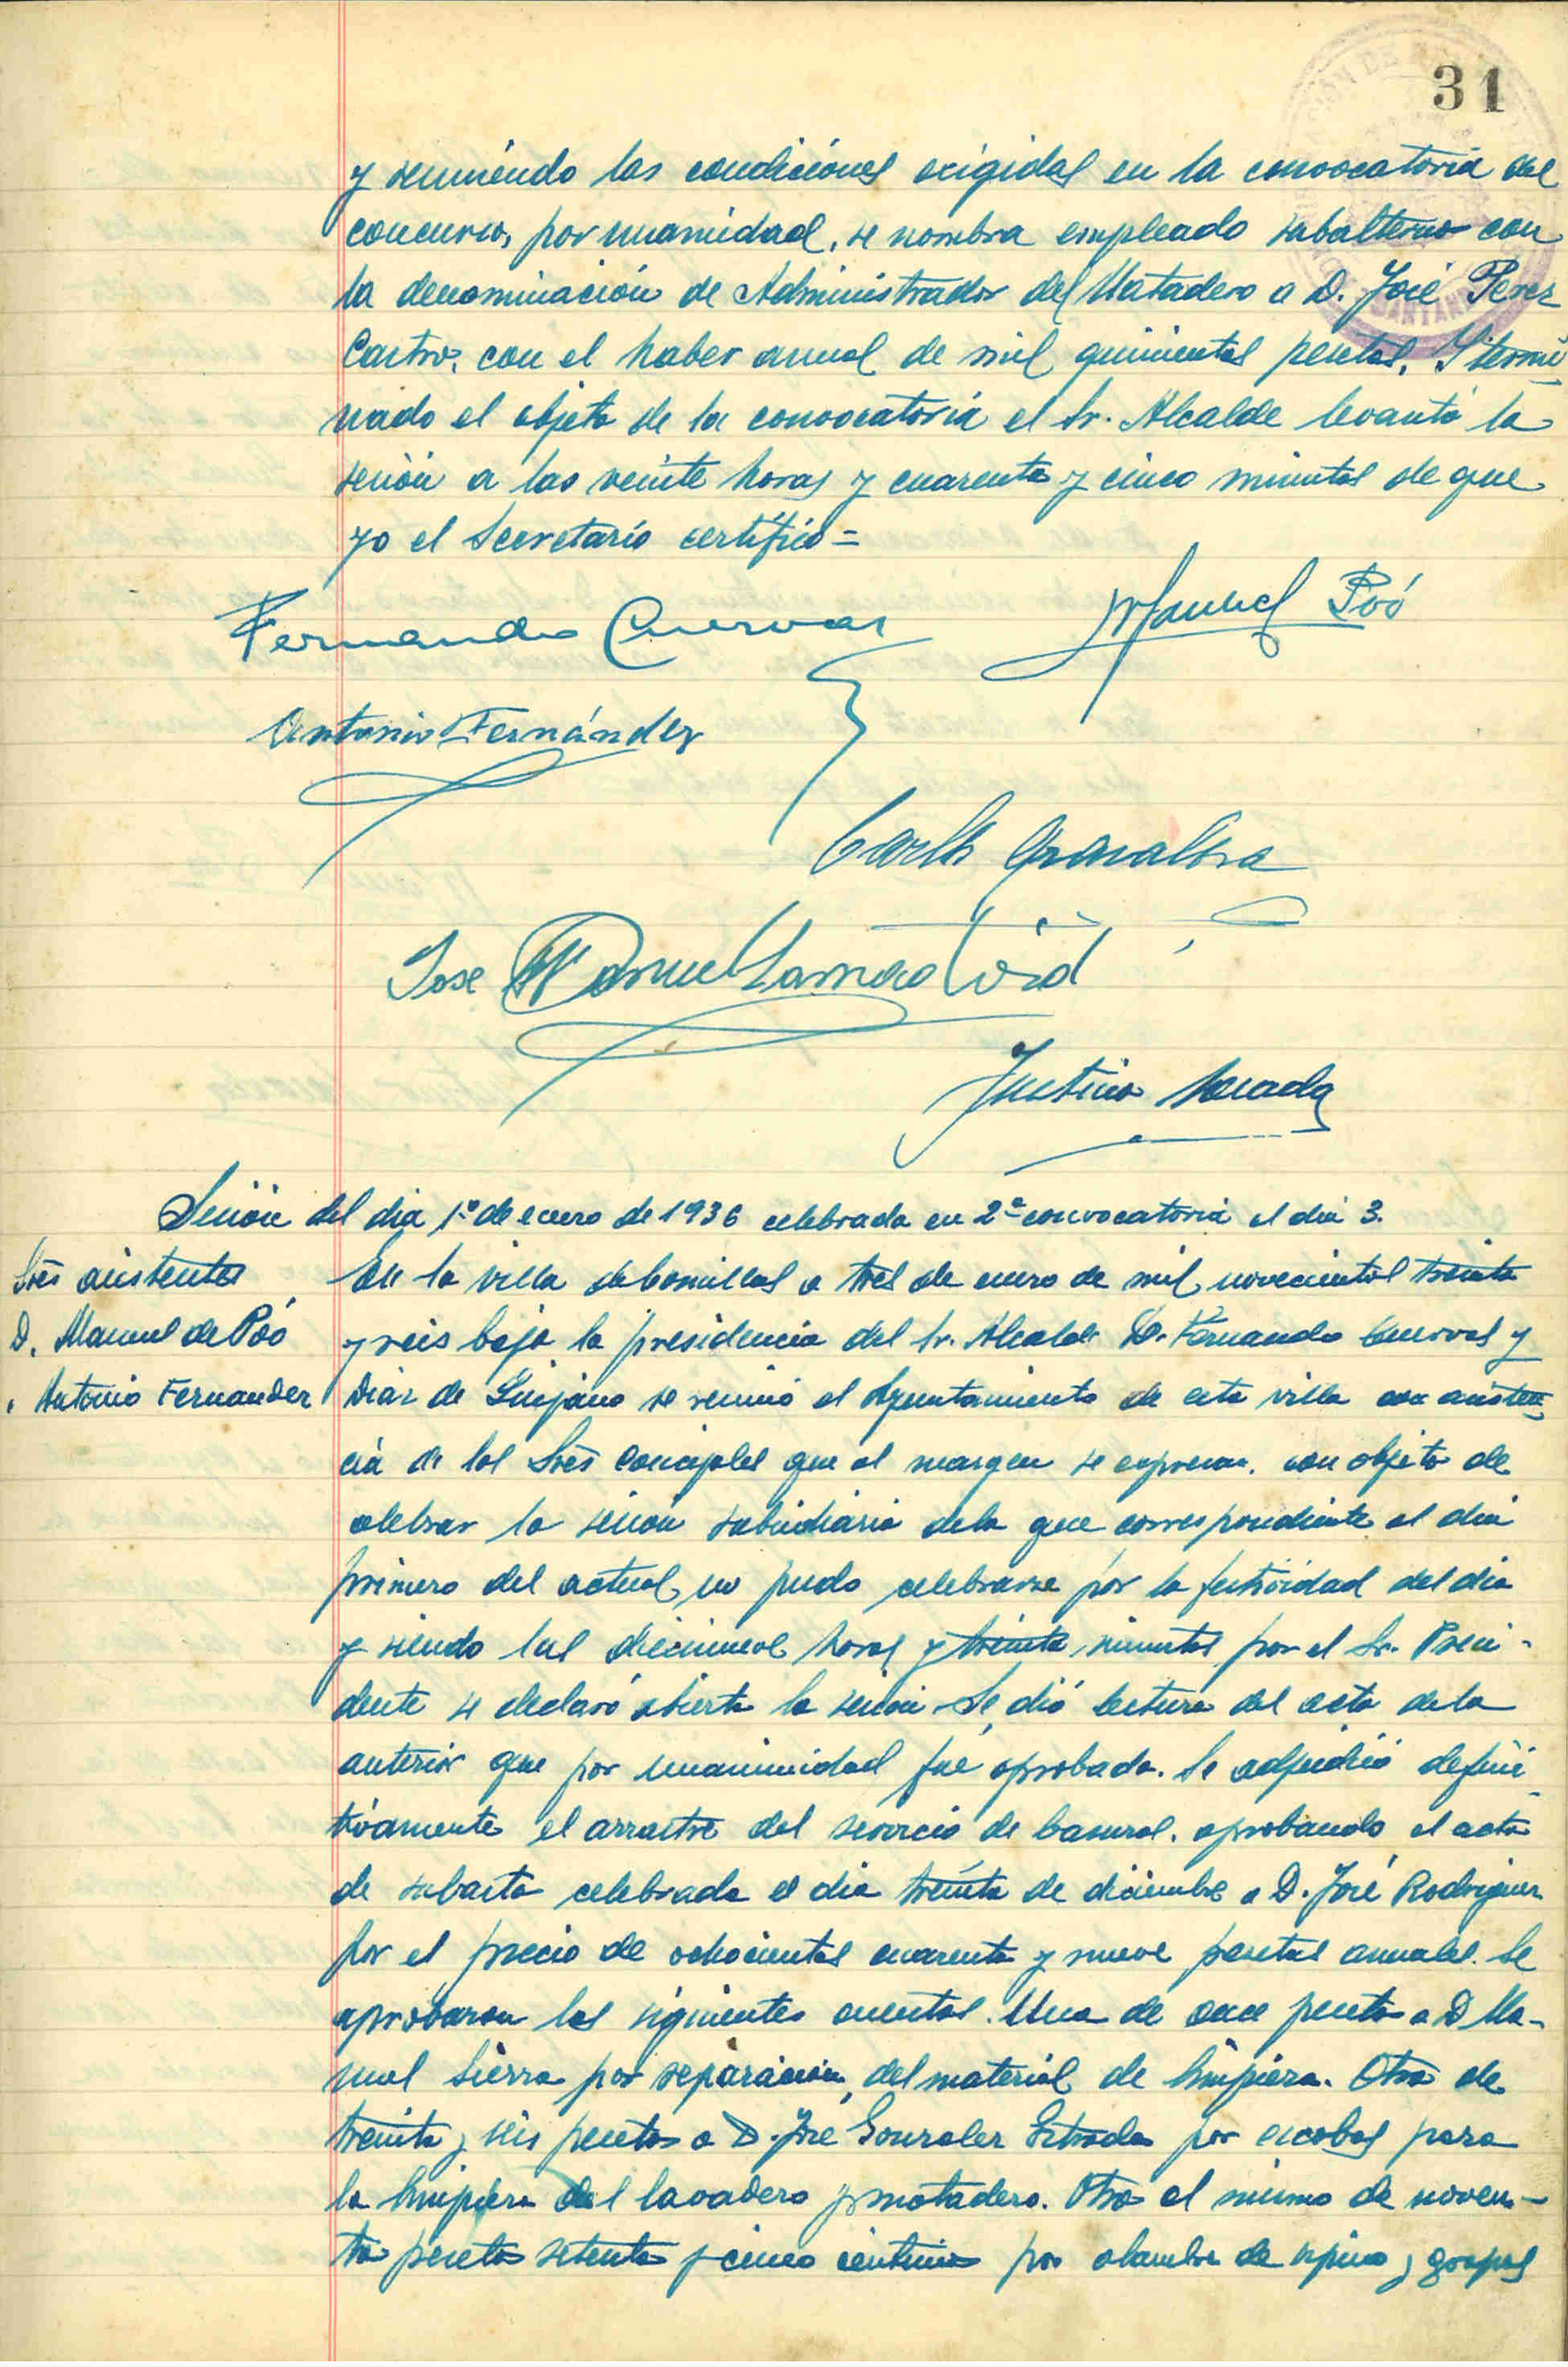 31
y reuniendo las condiciones exigidas en la convocatoria del
concurso, por unanimidad, se nombra empleado subalterno con
la denominación de Administrador del Matadero a D. José Perez
Castro, con el haber anual de mil quinientas pesetas. Y termi
nado el objeto de la convocatoria el Sr. Alcalde levantó la
sesión a las veinte horas y cuarenta y cinco minutos de que
yo el Secretario certifico =
Fernando Cuervas
Manuel Poó
Antonio Fernández
José Manuel Lamao Vid
Sesión del dia 1º de enero de 1936 celebrada en 2ª convocatoria el dia 3.
Sres asistentes
D. Manuel de Poó
" Antonio Fernandez
En la villa de Comillas a tres de enero de mil novecientos treinta
y seis bajo la presidencia del Sr. Alcalde D. Fernando Cuervas y
Diaz de Quijano se reunió el Ayuntamiento de esta villa con asisten
cia de los Sres Concejales que al margen se expresan, con objeto de
celebrar la sesion subsidiaria dela que correspondiente al dia
primero del actual, no pudo celebrarse por la festividad del dia
y siendo las diecinueve horas y treinta minutos por el Sr. Presi-
dente se declaró abierta la sesion. Se dió lectura del acta dela
anterior que por unanimidad fue aprobada. Se adjudicó defini
tivamente el arrastre del servicio de basuras, aprobando el acta
de subasta celebrada el dia treinta de diciembre a D. José Rodriguez
por el precio de ochocientas cuarenta y nueve pesetas anuales. Se
aprobaron las siguientes cuentas. Una de once pesetas a D Ma-
nuel Sierra por reparación del material de limpieza. Otra de
treinta y seis pesetas a D. José Gonzalez Estrada por escobas para
la limpieza del lavadero y matadero. Otra al mismo de noven-
ta pesetas setenta y cinco centimos por alambre de espino y grapas